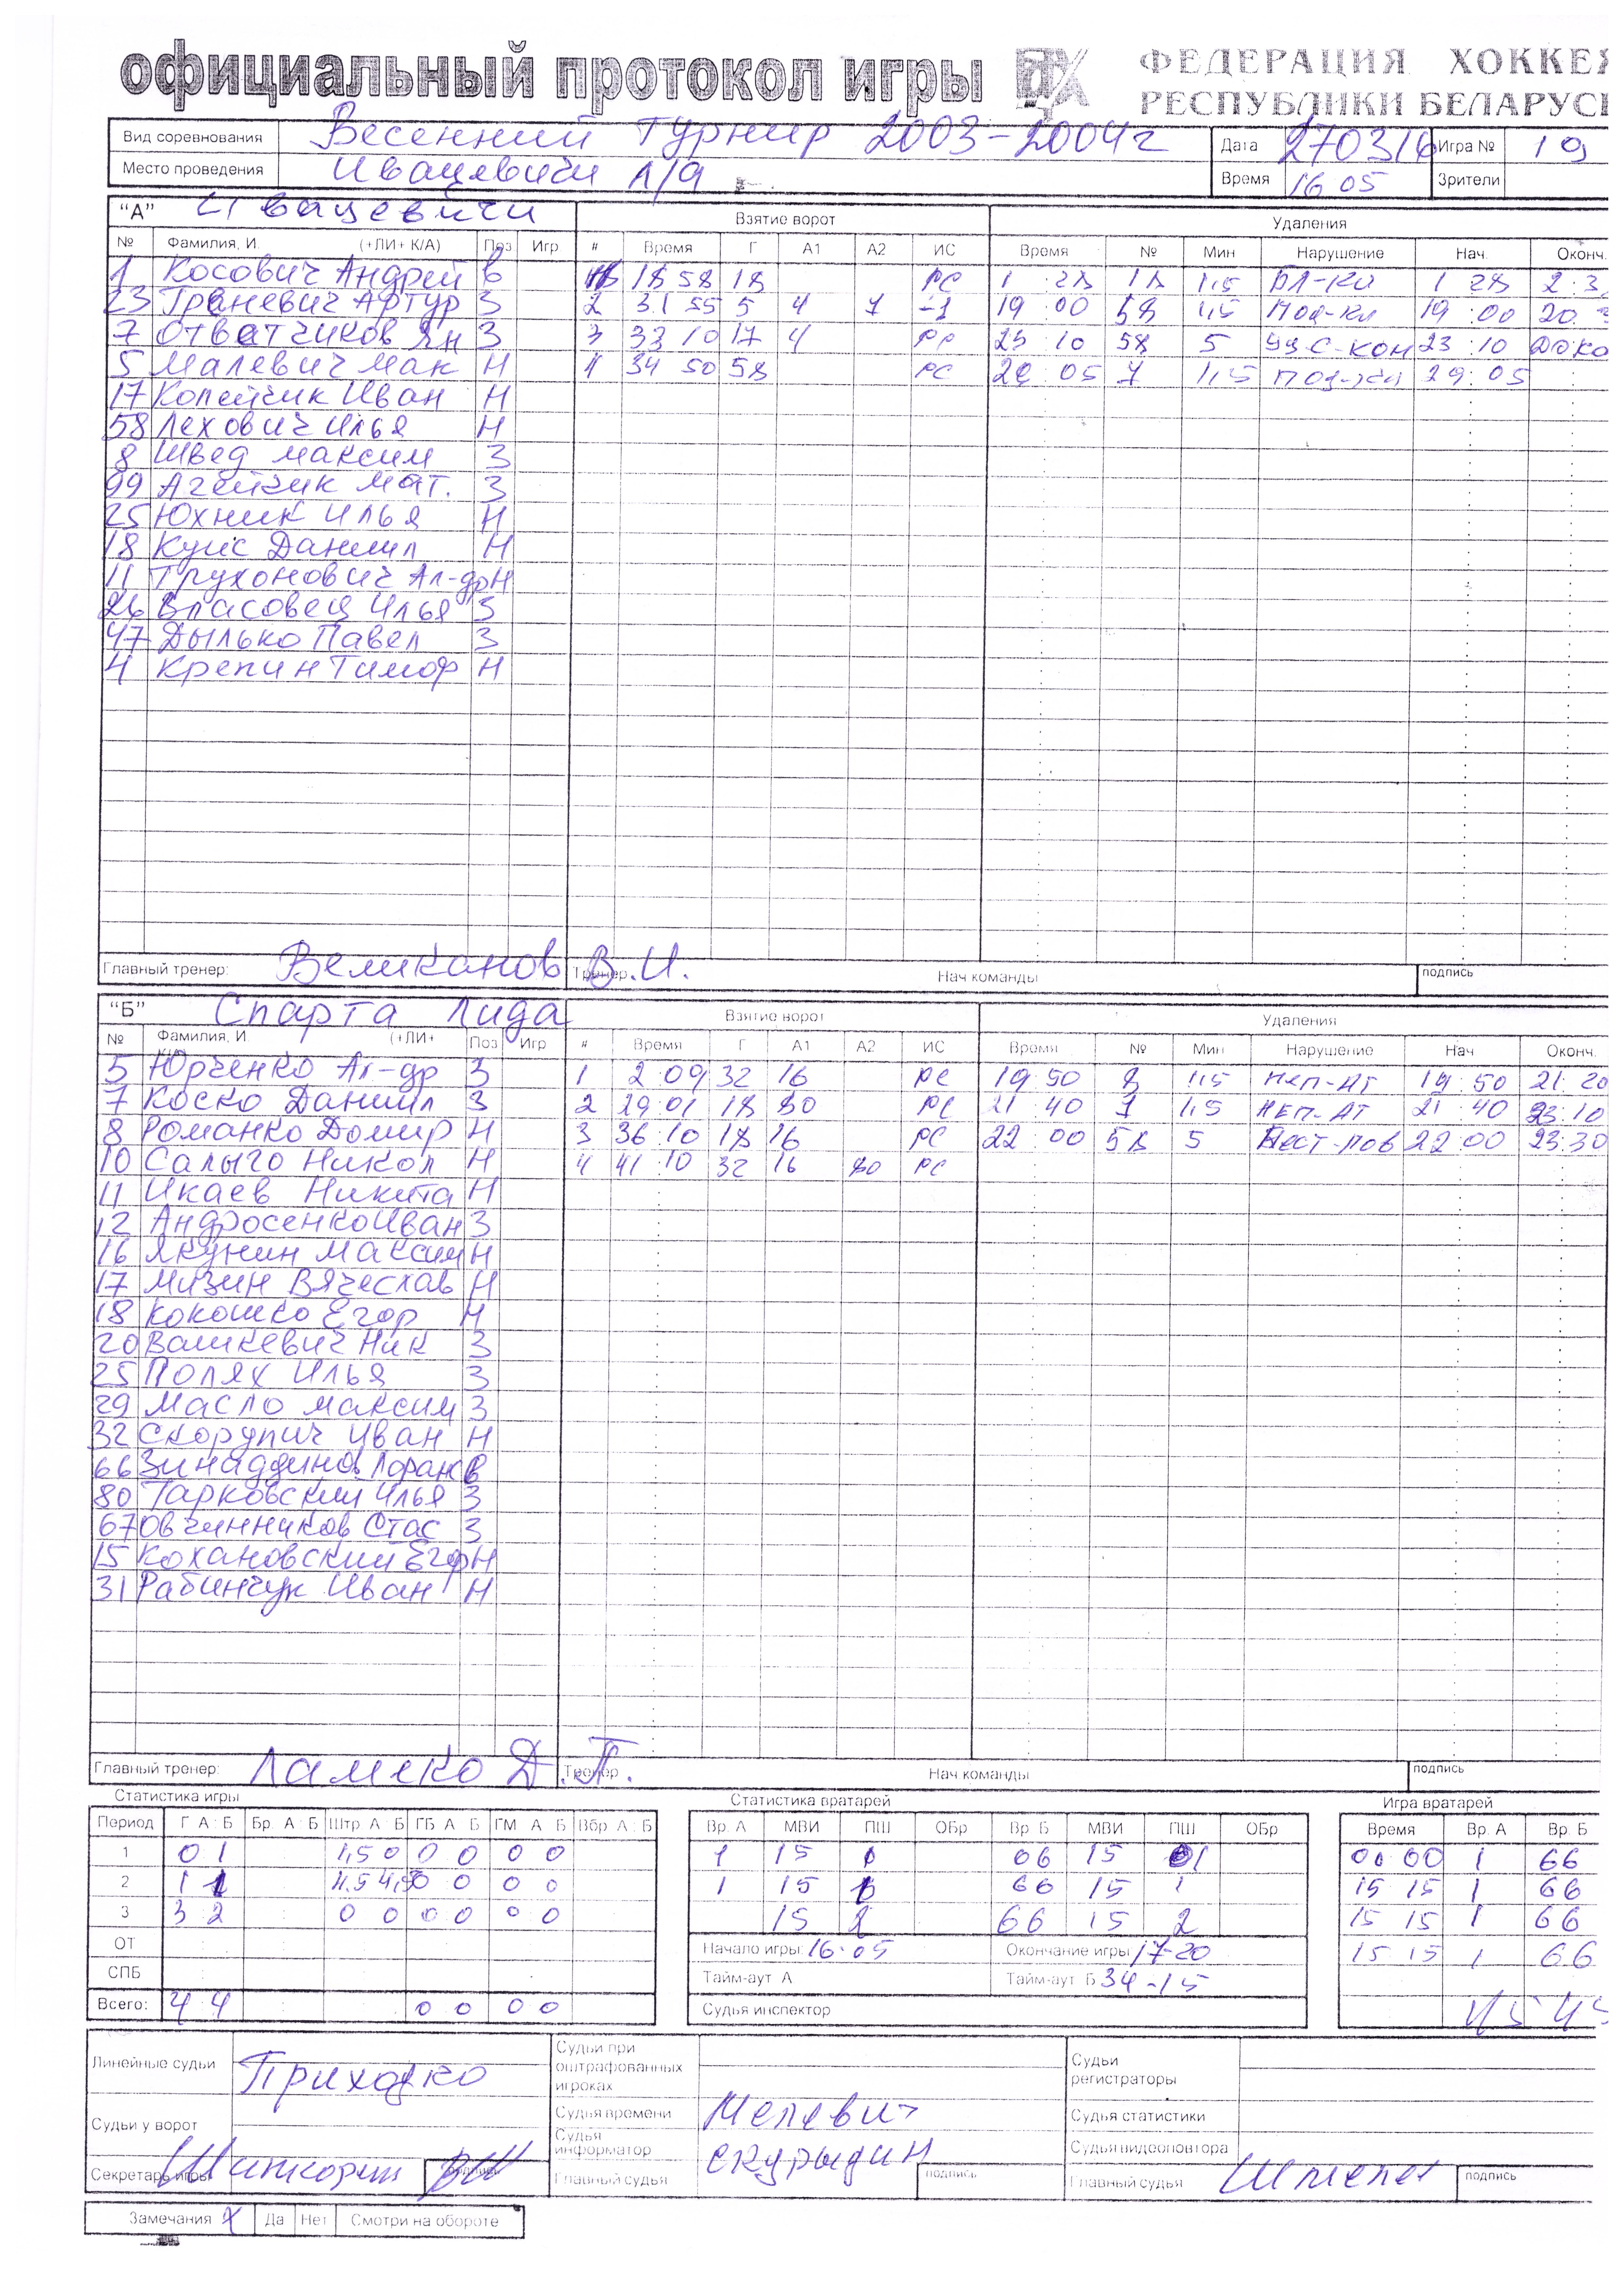 официальный протокол игры ФЕДЕРАЦИЯ ХОККЕЯ
РЕСПУБЛИКИ БЕЛАРУСЬ
Вид соревнования Весенний турнир 2003-2004г Дата 270316 Игра № 19
Место проведения Ивацевичи Л/Д Время 16 05 Зрители
"А" Ивацевичи Взятие ворот Удаления
№ Фамилия, И. (+ЛИ+ К/А) Поз Игр. # Время Г А1 А2 ИС Время № Мин Нарушение Нач. Оконч.
1 Косович Андрей в 18 58 18 РС 1 28 18 1,5 1 28 2:3
23 Граневич Артур З 2 31 55 5 4 7 -1 19 00 58 1,5 19:00 20
7 Отватчиков Ян З 3 33 10 17 4 РС 23 10 58 5 23:10
5 Малевич Мак Н 4 34 50 58 РС 29:05 7 1,5 29:05
17 Копейчик Иван Н
58 Лехович Илья Н
8 Швед Максим З
99 Агейчик Мат. З
25 Юхник Илья Н
18 Куис Даниил Н
11 Трухонович Ал-др Н
26 Власовец Илья З
47 Дылько Павел З
4 Крепин Тимоф Н
Главный тренер: Великанов В.И. Тренер Нач команды подпись
"Б" Спарта Лида Взятие ворот Удаления
№ Фамилия, И. (+ЛИ+ Поз Игр # Время Г А1 А2 ИС Время № Мин Нарушение Нач Оконч.
5 Юрченко Ал-др З 1 2:09 32 16 РС 19 50 8 1,5 Неп-Ат 19:50 21:20
7 Коско Даниил З 2 29:01 18 80 РС 21 40 7 1,5 Неп-Ат 21:40 23:10
8 Романко Домир Н 3 36:10 18 16 РС 22:00 58 5 22 00 23:30
10 Салыго Никол Н 4 41:10 32 16 80 РС
11 Икаев Никита Н
12 Андросенко Иван З
16 Якунин Максим Н
17 Мизин Вячеслав Н
18 Кокошко Егор Н
20 Вашкевич Ник З
25 Полях Илья З
29 Масло Максим З
32 Скорупич Иван Н
66 Зинаддинов в
80 Тарковский Илья З
67 Овчинников Стас З
15 Кохановский Егор Н
31 Рабинчук Иван Н
Главный тренер: Ламеко Д.П. Тренер Нач команды подпись
Статистика игры Статистика вратарей Игра вратарей
Период Г А:Б Бр. А:Б Штр А Б ГБ А Б ГМ А Б Вбр А:Б Вр. А МВИ ПШ ОБр Вр. Б МВИ ПШ ОБр Время Вр. А Вр. Б
1 0 1 1,5 0 0 0 0 0 1 15 66 15 1 00 00 1 66
2 1 1 0 0 0 1 15 66 15 1 15 15 1 66
3 3 2 0 0 0 0 0 0 15 2 66 15 2 15 15 1 66
ОТ Начало игры: 16:05 Окончание игры 17-20 15 15 1 66
СПБ Тайм-аут А Тайм-аут Б 34-15
Всего: 4 4 0 0 0 0 Судья инспектор 45 45
Линейные судьи Приходко Судьи при оштрафованных игроках Судьи регистраторы
Судьи у ворот Судья времени Мелевич Судья статистики
Судья информатор Скурыдин Судья видеоповтора
Секретарь игры подпись Главный судья подпись Главный судья подпись
Замечания Да Нет Смотри на обороте